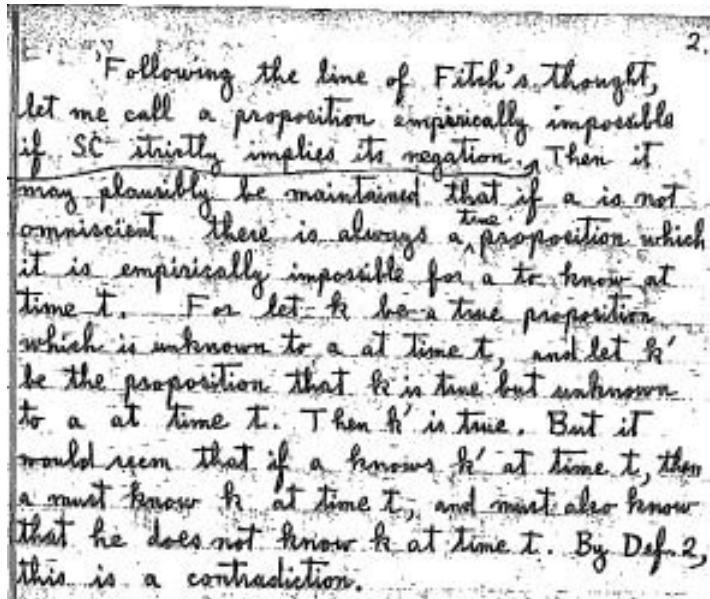 2.
Following the line of Fitch's thought,
let me call a proposition empirically impossible
if SC strictly implies its negation. Then it
may plausibly be maintained that if a is not
omniscient there is always a true proposition which
it is empirically impossible for a to know at
time t. For let k be a true proposition
which is unknown to a at time t, and let k'
be the proposition that k is true but unknown
to a at time t. Then k' is true. But it
would seem that if a knows k' at time t, then
a must know k at time t, and must also know
that he does not know k at time t. By Def. 2,
this is a contradiction.